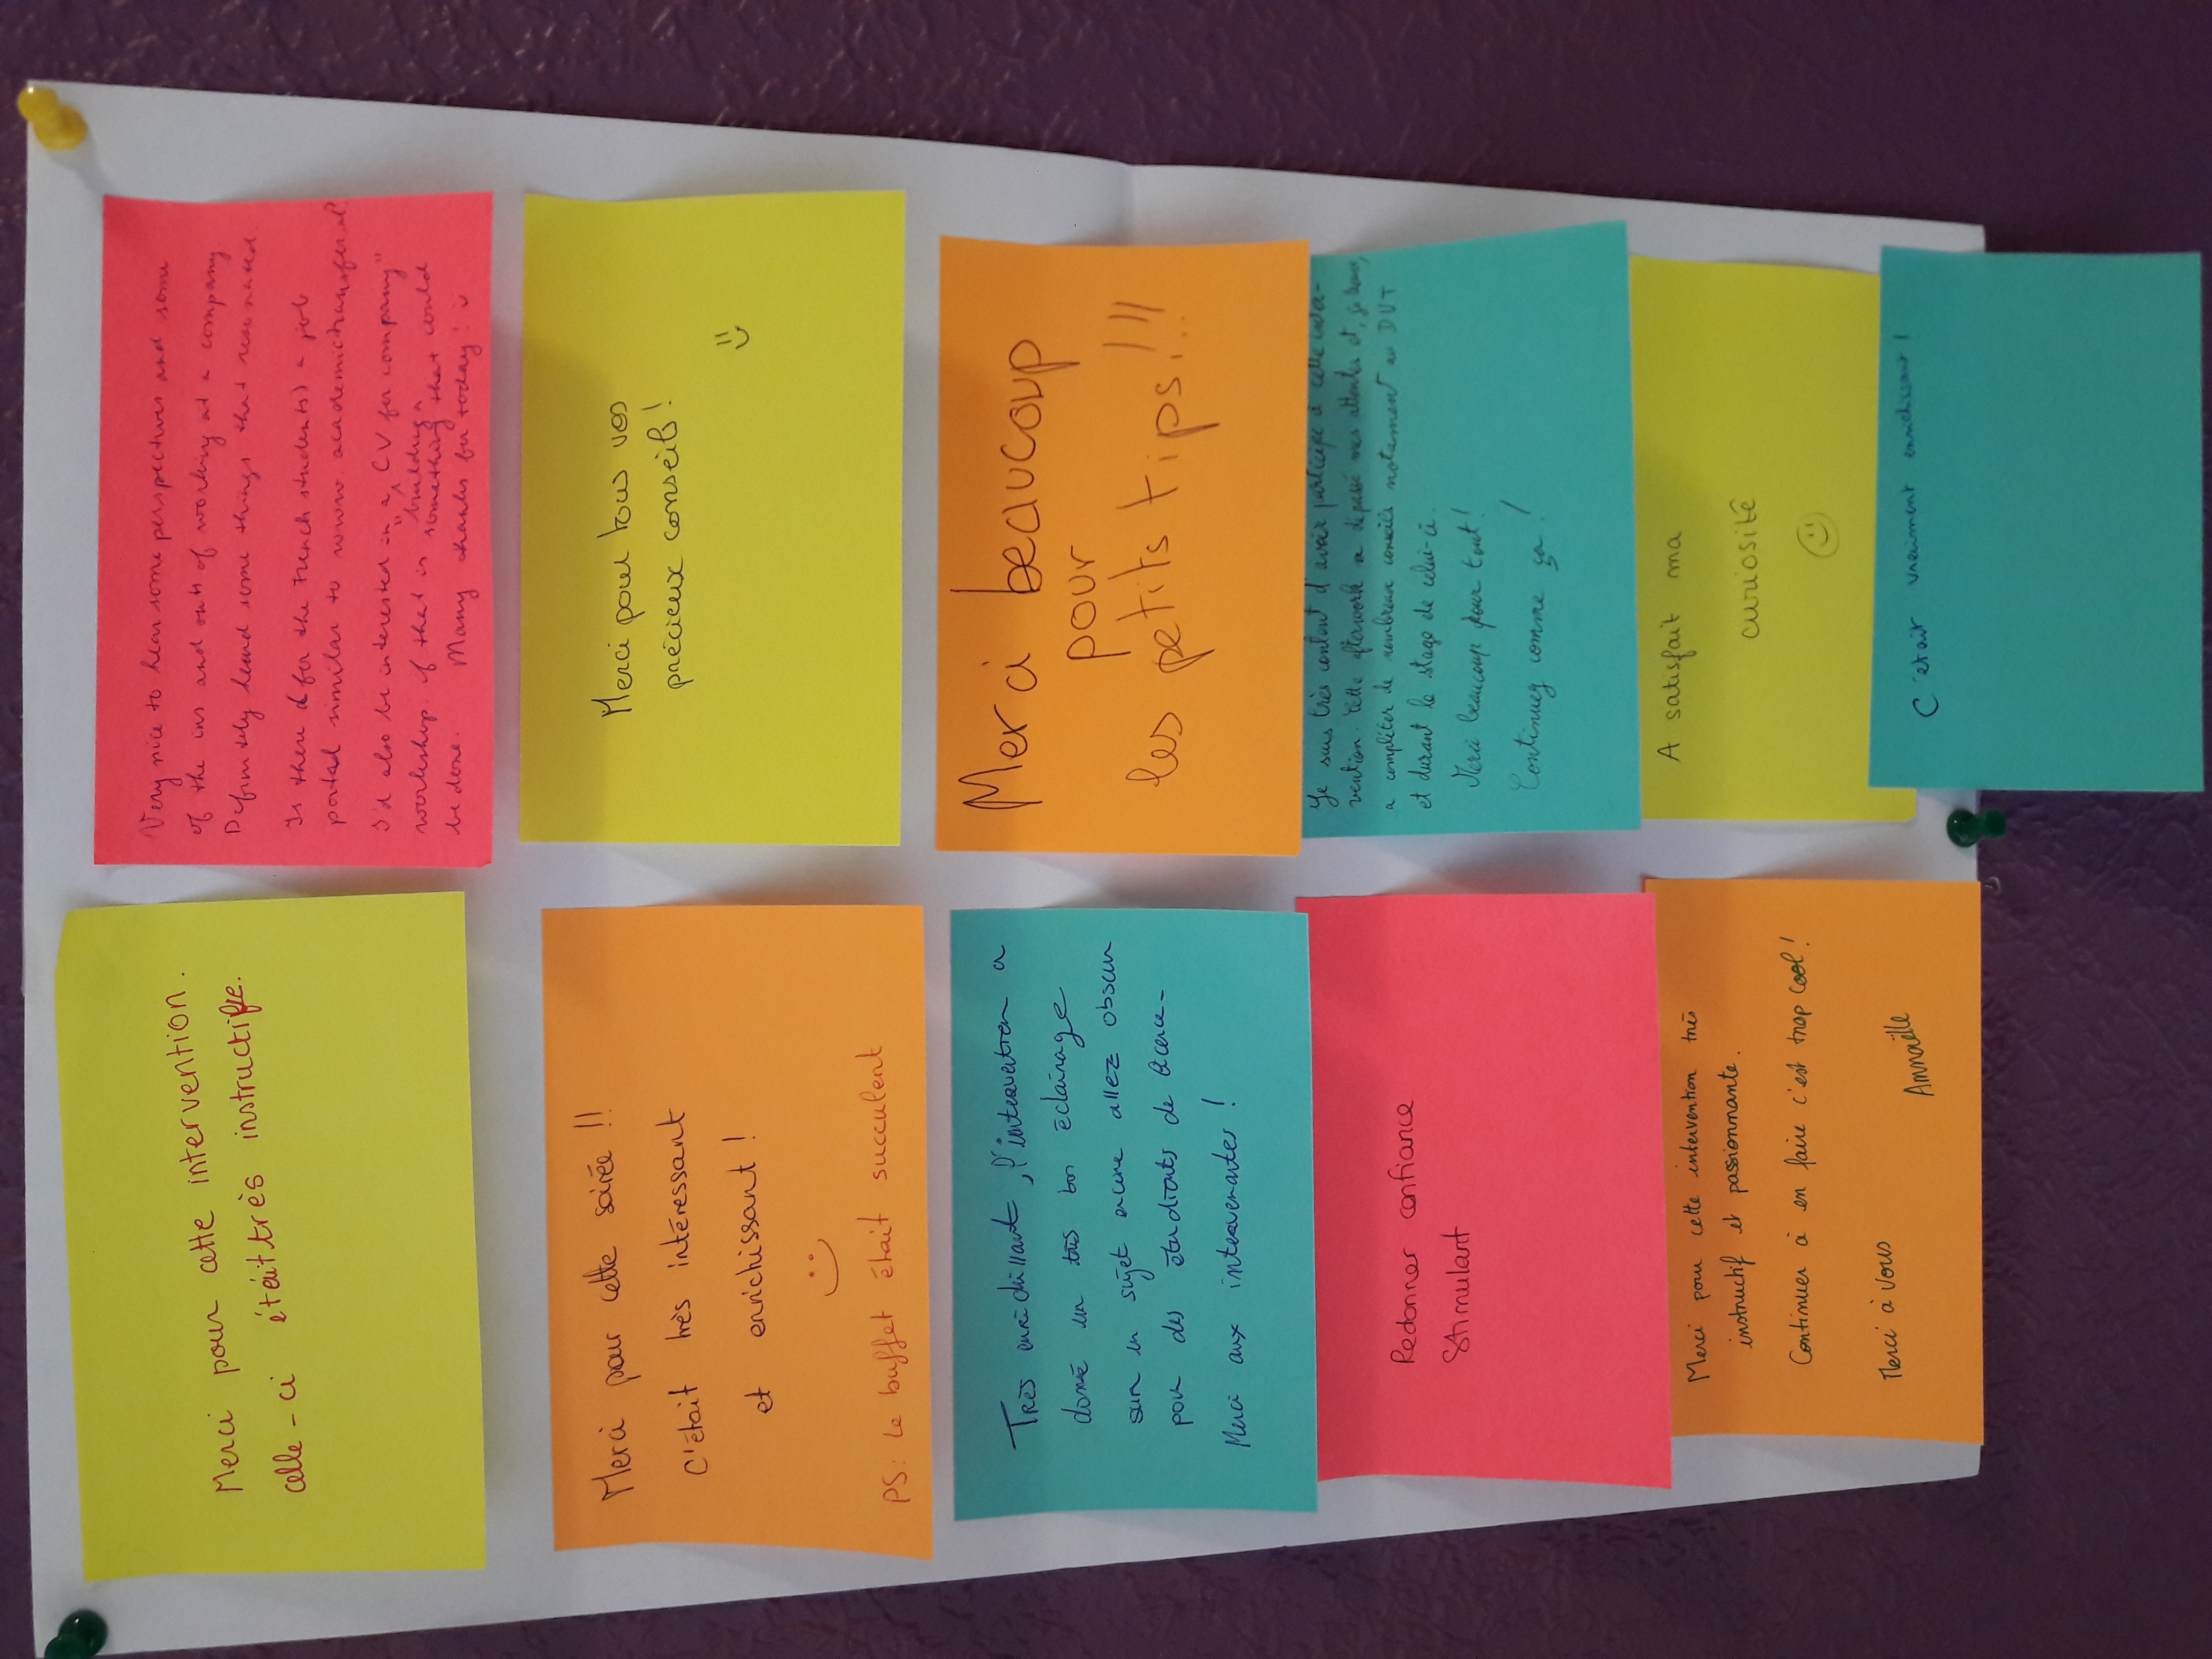 Merci pour cette intervention.
celle-ci était très instructive.
Very nice to hear some perspectives and some
of the ins and outs of working at a company
Definitely heard some things that resonated
Is there (for the French students) a job
portal similar to www.academictransfer.nl?
I'd also be interested in "a CV for company"
building a
workshop, if that is something that could
be done. Many thanks for today!
Merci pour cette soirée !!
C'était très intéressant
et enrichissant !
PS: Le buffet était succulent
Merci pour tous vos
précieux conseils !
Très enrichissant, l'intervention a
donné un très bon éclairage
sur un sujet encore allez obscur
pour des étudiants de licence.
Merci aux intervenantes !
Merci beaucoup
pour
les petits tips!!!
Redonner confiance
Stimulant
Je suis très content d'avoir participé à cette inter-
vention. Cette afterwork a dépassé mes attentes et,
a compléter de nombreux conseils notamment au DUT
et durant le stage de celui-ci.
Merci beaucoup pour tout!
Continuez comme ça !
Merci pour cette intervention très
instructif et passionnante.
Continuer à en faire c'est trop cool!
Merci à vous
Annaëlle
A satisfait ma
curiosité
C'était vraiment enrichissant !